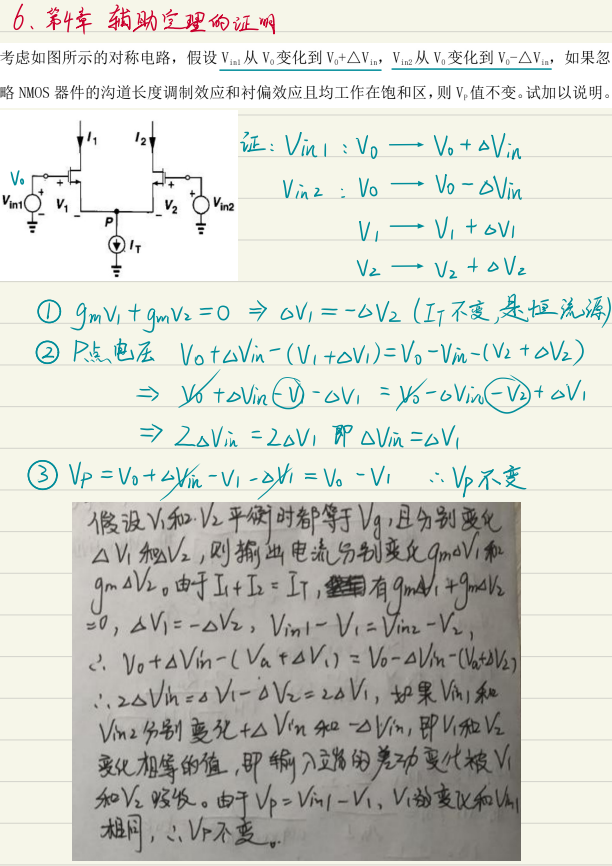 6、第4章 辅助定理的证明
考虑如图所示的对称电路，假设 Vin1 从 V0 变化到 V0+△Vin，Vin2 从 V0 变化到 V0-△Vin，如果忽
略 NMOS 器件的沟道长度调制效应和衬偏效应且均工作在饱和区，则 VP 值不变。试加以说明。
I1 I2
V0
Vin1 V1 V2 Vin2
P
IT
证：Vin1：V0 → V0+△Vin
Vin2：V0 → V0-△Vin
V1 → V1+△V1
V2 → V2+△V2
① gmV1+gmV2=0 ⇒ △V1=-△V2 (IT不变,是恒流源)
② P点电压 V0+△Vin-(V1+△V1)=V0-Vin-(V2+△V2)
⇒ V0+△Vin-V1-△V1 = V0-△Vin-V2+△V1
⇒ 2△Vin=2△V1 即 △Vin=△V1
③ VP=V0+△Vin-V1-△V1=V0-V1 ∴VP不变
假设V1和V2平衡时都等于Vg,且分别变化
△V1和△V2,则输出电流分别变化gm△V1和
gm△V2。由于I1+I2=IT,有gm△V1+gm△V2
=0, △V1=-△V2, Vin1-V1=Vin2-V2,
∴ V0+△Vin-(Va+△V1)=V0-△Vin-(Va+△V2)
∴2△Vin=△V1-△V2=2△V1, 如果Vin1和
Vin2分别变化+△Vin和-△Vin,即V1和V2
变化相等的值,即输入端的差动变化被V1
和V2吸收。由于VP=Vin1-V1, V1的变化和Vin1
相同,∴VP不变。